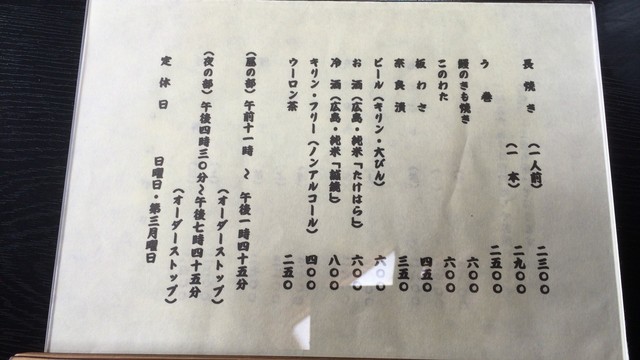 長焼き（一人前）二三〇〇
（一本）二九〇〇
う巻 二五〇〇
鰻のきも焼き 六〇〇
このわた 六〇〇
板わさ 四五〇
奈良漬 三五〇
ビール（キリン・大びん）六〇〇
お酒（広島・純米「たけはら」）六〇〇
冷酒（広島・純米「」）八〇〇
キリン・フリー（ノンアルコール）四〇〇
ウーロン茶 二五〇
（昼の部）午前十一時 〜 午後一時四十五分
（オーダーストップ）
（夜の部）午後四時三〇分〜午後七時四十五分
（オーダーストップ）
定休日 日曜日・第三月曜日